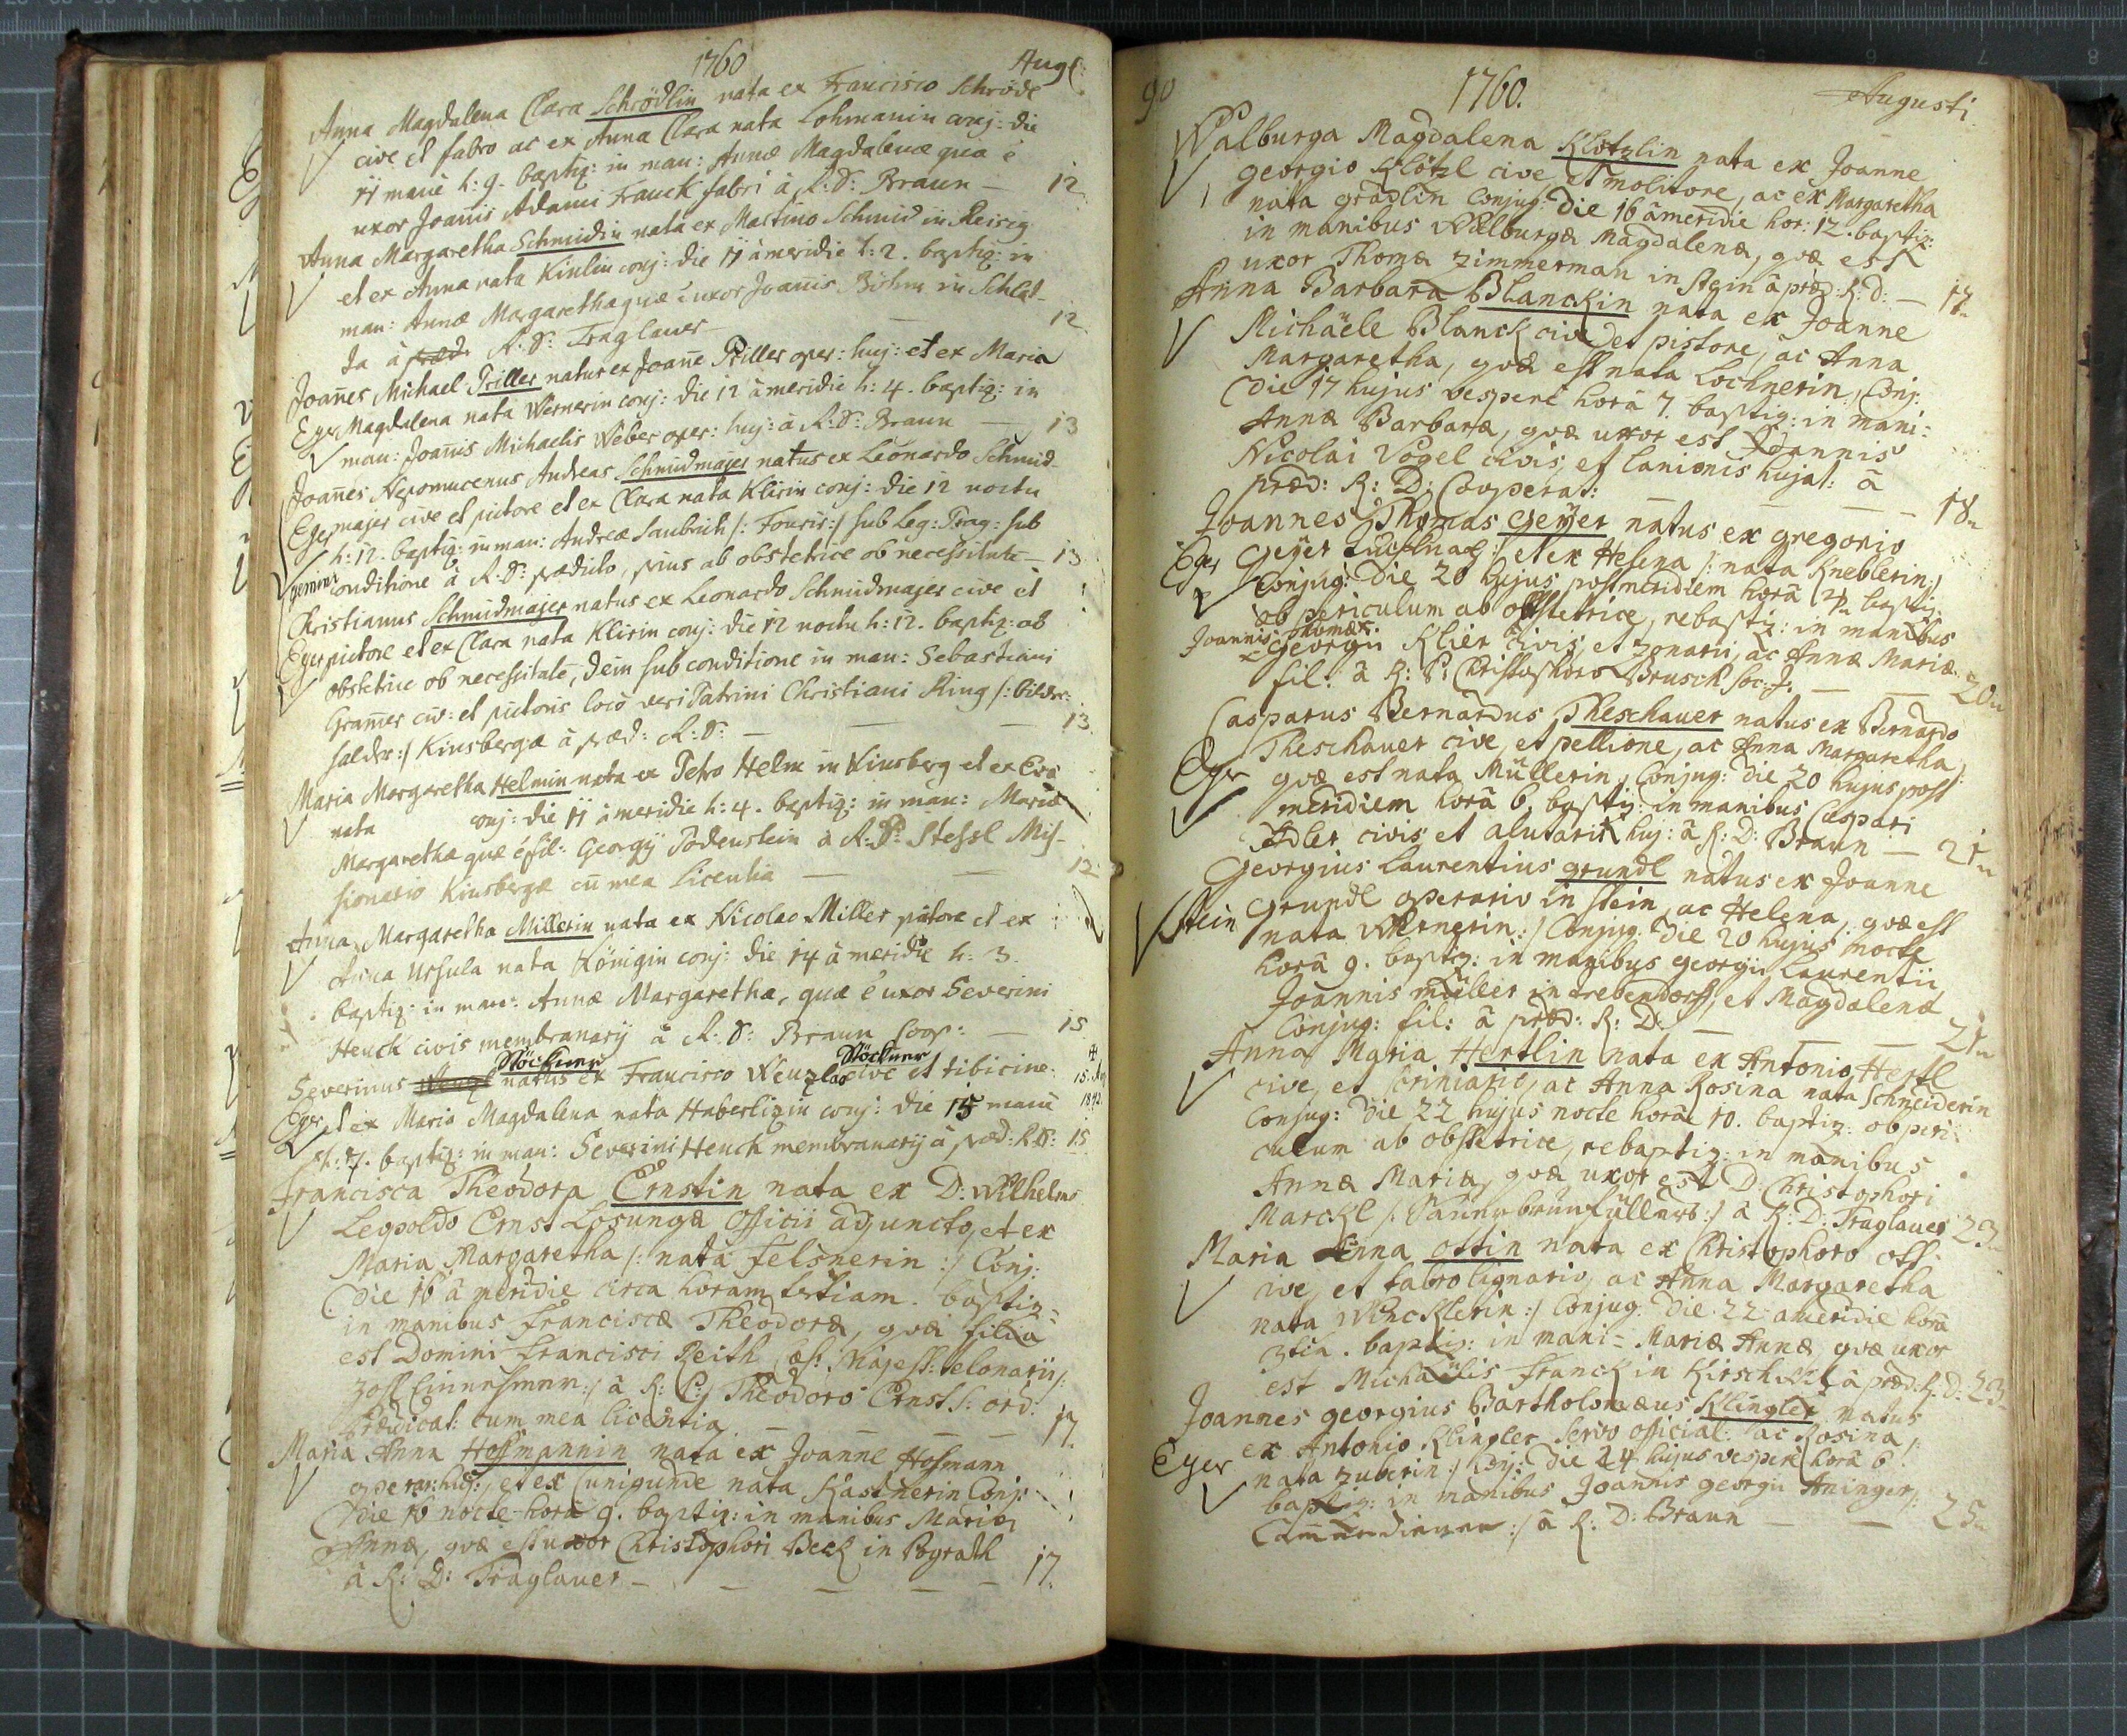 1760 Aug:
Anna Magdalena Clara Schrödlin nata ex Francisco Schrödl
cive et fabro ac ex Anna Clara nata Lohmanin conj: die
11 mane h: 9. baptiz: in man: Annæ Magdalenæ quæ ē
uxor Joannis Adami Franck fabri à R: D: Braun — 12
Anna Margaretha Schmidin nata ex Martino Schmid in Reisig
et ex Anna nata Kinlin conj: die 11 à meridie h: 2. baptiz: in
man: Annæ Margarethæ quæ ē uxor Joannis Böhm in Schlat-
ta à R: D: Traglauer — 12.
Joannes Michael Triller natus ex Joanne Triller oper: huj: et ex Maria
Eger Magdalena nata Wernerin conj: die 12 à meridie h: 4. baptiz: in
man: Joannis Michaelis Weber oper: huj: à R: D: Braun — 13
Joannes Nepomucenus Andreas Schmidmajer natus ex Leonardo Schmid-
Eger majer cive et pictore et ex Clara nata Klirin conj: die 12 noctu
h: 12. baptiz: in man: Andreæ Saubrich /: Fourir :/ sub Leg: Prag: sub
gemini conditione à R: D: prædicto, prius ab obstetrice ob necessitate — 13
Christianus Schmidmajer natus ex Leonardo Schmidmajer cive et
Eger pictore et ex Clara nata Klirin conj: die 12 noctu h: 12. baptiz: ab
obstetrice ob necessitate, dein sub conditione in man: Sebastiani
Gramer civ: et pictoris loco veri Patrini Christiani Ring /:
:/ Kinsbergæ à præd: R: D: — 13.
Maria Margaretha Helmin nata ex Petro Helm in Kinsberg et ex Eva
nata conj: die 11 à meridie h: 4. baptiz: in man: Mariæ
Margarethæ quæ ē fil: Georgij Födenstein à R: P: Stessl Mis-
sionario Kinsbergæ cū mea licentia — 12
Anna Margaretha Millerin nata ex Nicolao Miller pistore et ex
Anna Ursula nata Königin conj: die 14 à meridie h: 3.
baptiz: in man: Annæ Margarethæ, quæ ē uxor Severini
Henck civis membranarij à R: D: Braun Coop: — 15
Stöckner Stöckner
Severinus natus ex Francisco Wenzlao cive et tibicine. 15.
Eger et ex Maria Magdalena nata Haberlizin conj: die 15 mane 1892
h: 7. baptiz: in man: Severini Henck membranarij à præd: R: D: 15
Francisca Theodora Ernstin nata ex D: Wilhelmo
Leopoldo Ernst Losungæ Officii adjuncto, et ex
Maria Margaretha /: nata Felsnerin :/ Conj:
die 16 à meridie circa horam tertiam. baptiz:
in manibus Franciscæ Theodoræ, quæ filia
est Domini Francisci Reith Cæs: Majest: telonarii /:
Zoll Einnehmer :/ à R: P: Theodoro Ernst S: ord:
Prædicat: cum mea licentia — 17.
Maria Anna Hofmannin nata ex Joanne Hofmann
operar: huj:, et ex Cunigunde nata Kästnerin Conj:
die 16 nocte hora 9. baptiz: in manibus Mariæ
Annæ, quæ est uxor Christophori Beck in Pograth
à R: D: Traglauer — 17.
90 1760. Augusti
Walburga Magdalena Klötzlin nata ex Joanne
georgio Klötzl cive et molitore, ac ex Margaretha
nata grädlin Conjug: die 16 à meridie hor: 12. baptiz:
in manibus Walburgæ Magdalenæ, quæ est
uxor Thomæ Zimmerman in Stein à præd: R: D: — 17.
Anna Barbara Blanckin nata ex Joanne
Michäele Blanck cive et pistore, ac Anna
Margaretha, quæ est nata Lochnerin, Conj:
die 17 hujus vesperi horâ 7. baptiz: in mani:
Annæ Barbaræ, quæ uxor est Joannis
Nicolai Vogel civis, et lanionis hujat: à
præd: R: D: Cooperat: — 18.
Joannes Thomas geÿer natus ex gregorio
Eger geÿer et ex Helena /: nata Kneblerin :/
Conjug: die 20 hujus post meridiem horâ baptiz:
ob periculum ab obstetrice, rebaptiz: in manibus
Joannis Thomæ
georgii Klier civis, et zonarii, ac Annæ Mariæ
fil: à R: P: Christophoro Brusch Soc: J: — 20.
Casparus Bernardus Theschauer natus ex Bernardo
Theschauer cive, et pellione, ac Anna Margaretha,
Eger quæ est nata Müllerin, Conjug: die 20 hujus post
meridiem horâ 6. baptiz: in manibus Caspari
Adler civis et alutarii huj: à R: D: Braun — 21.
Georgius Laurentius grundl natus ex Joanne
Stein grundl operario in Stein, ac Helena, quæ est
nata Wernerin :/ Conjug: die 20 hujus nocte
horâ 9. baptiz: in manibus georgii Laurentii,
Joannis müller in trebendorff, et Magdalenæ
Conjug: fil: à præd: R: D: — 21.
Anna Maria Hertlin nata ex Antonio Hertl
cive, et scriniario, ac Anna Rosina nata Schneiderin
Conjug: die 22 hujus nocte horâ 10. baptiz: ob peri-
culum ab obstetrice, rebaptiz: in manibus
Annæ Mariæ, quæ uxor est D: Christophori
Marckl /: Sauerbrunfüllers :/ à R: D: Traglauer 23.
Maria Anna Ottin nata ex Christophoro Ott
cive, et fabro lignario, ac Anna Margaretha
nata Wincklerin :/ Conjug: die 22 à meridie horâ
3tia. baptiz: in mani: Mariæ Annæ, quæ uxor
est Michäelis Franck in à præd: R: D: 23.
Joannes georgius Bartholomæus Klingler natus
ex Antonio Klingler Servo official: ac Rosina /:
Eger nata Zuberin :/ Conj: die 24 hujus vesperi horâ 6.
baptiz: in manibus Joannis georgii Aninger /:
:/ à R: D: Braun — 25.